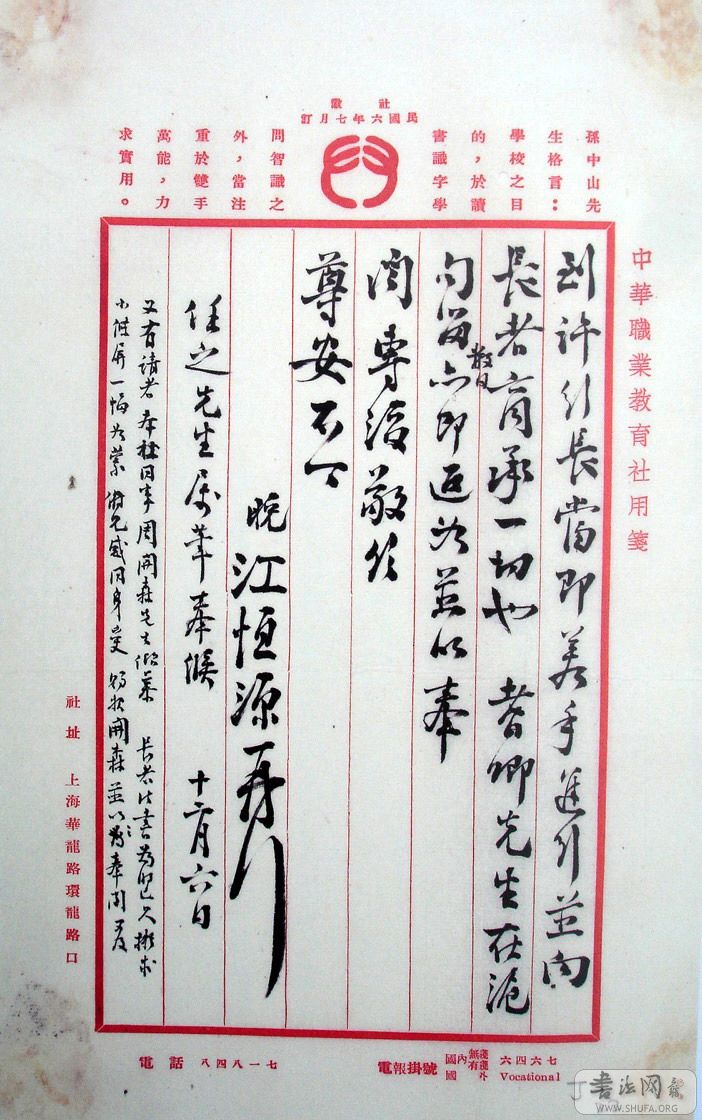 社徽
民國六年七月訂
孫中山先
生格言：
學校之目
的，於讀
書識字學
問智識之
外，當注
重於雙手
萬能，力
求實用。
中華職業教育社用箋
到許行長當即着手進行並向
長者商承一切也 耆卿先生在滬
勾留數日即返 並以奉
聞專復敬頌
尊安不一
晚江恒源再行
任之先生屬筆奉候 十二月六日
又有請者本社同事周開森先生 長者法書 已久擬求
小 屏一幅 蒙 俯允感同身受 開森並以 奉聞
社址 上海華龍路環龍路口
電話 八四八一七
電報掛號 國內 無線 有線 國
七六四六
Vocational
书法网
WWW.SHUFA.ORG